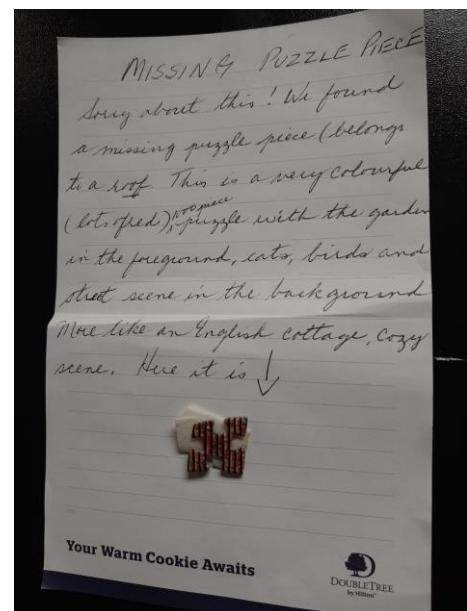 MISSING PUZZLE PIECE
Sorry about this! We found
a missing puzzle piece (belongs
to a roof. This is a very colourful
(lots of red), 1000 piece puzzle with the garden
in the foreground, cats, birds and
street scene in the background
More like an English cottage, cozy
scene. Here it is
Your Warm Cookie Awaits
DOUBLETREE
by Hilton